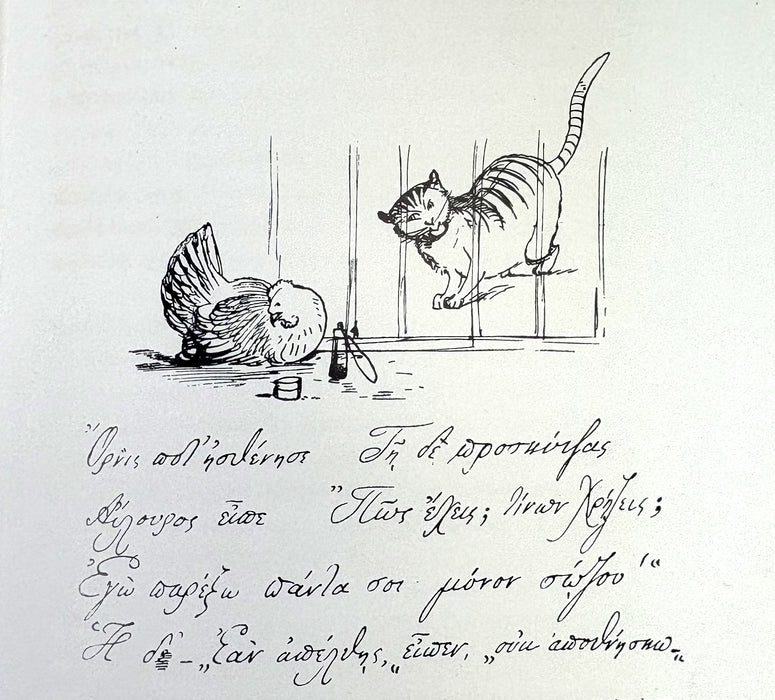 Ὄρνις ποτ' ἠσθένησε Τῇ δὲ προσκύψας
Αἴλουρος εἶπε "Πῶς ἔχεις; τίνων χρῄζεις;
Ἐγὼ παρέξω πάντα σοι μόνον σῴζου"
Ἡ δὲ – „Ἐὰν ἀπέλθῃς, „ εἶπεν, „οὐκ ἀποθνήσκω–„